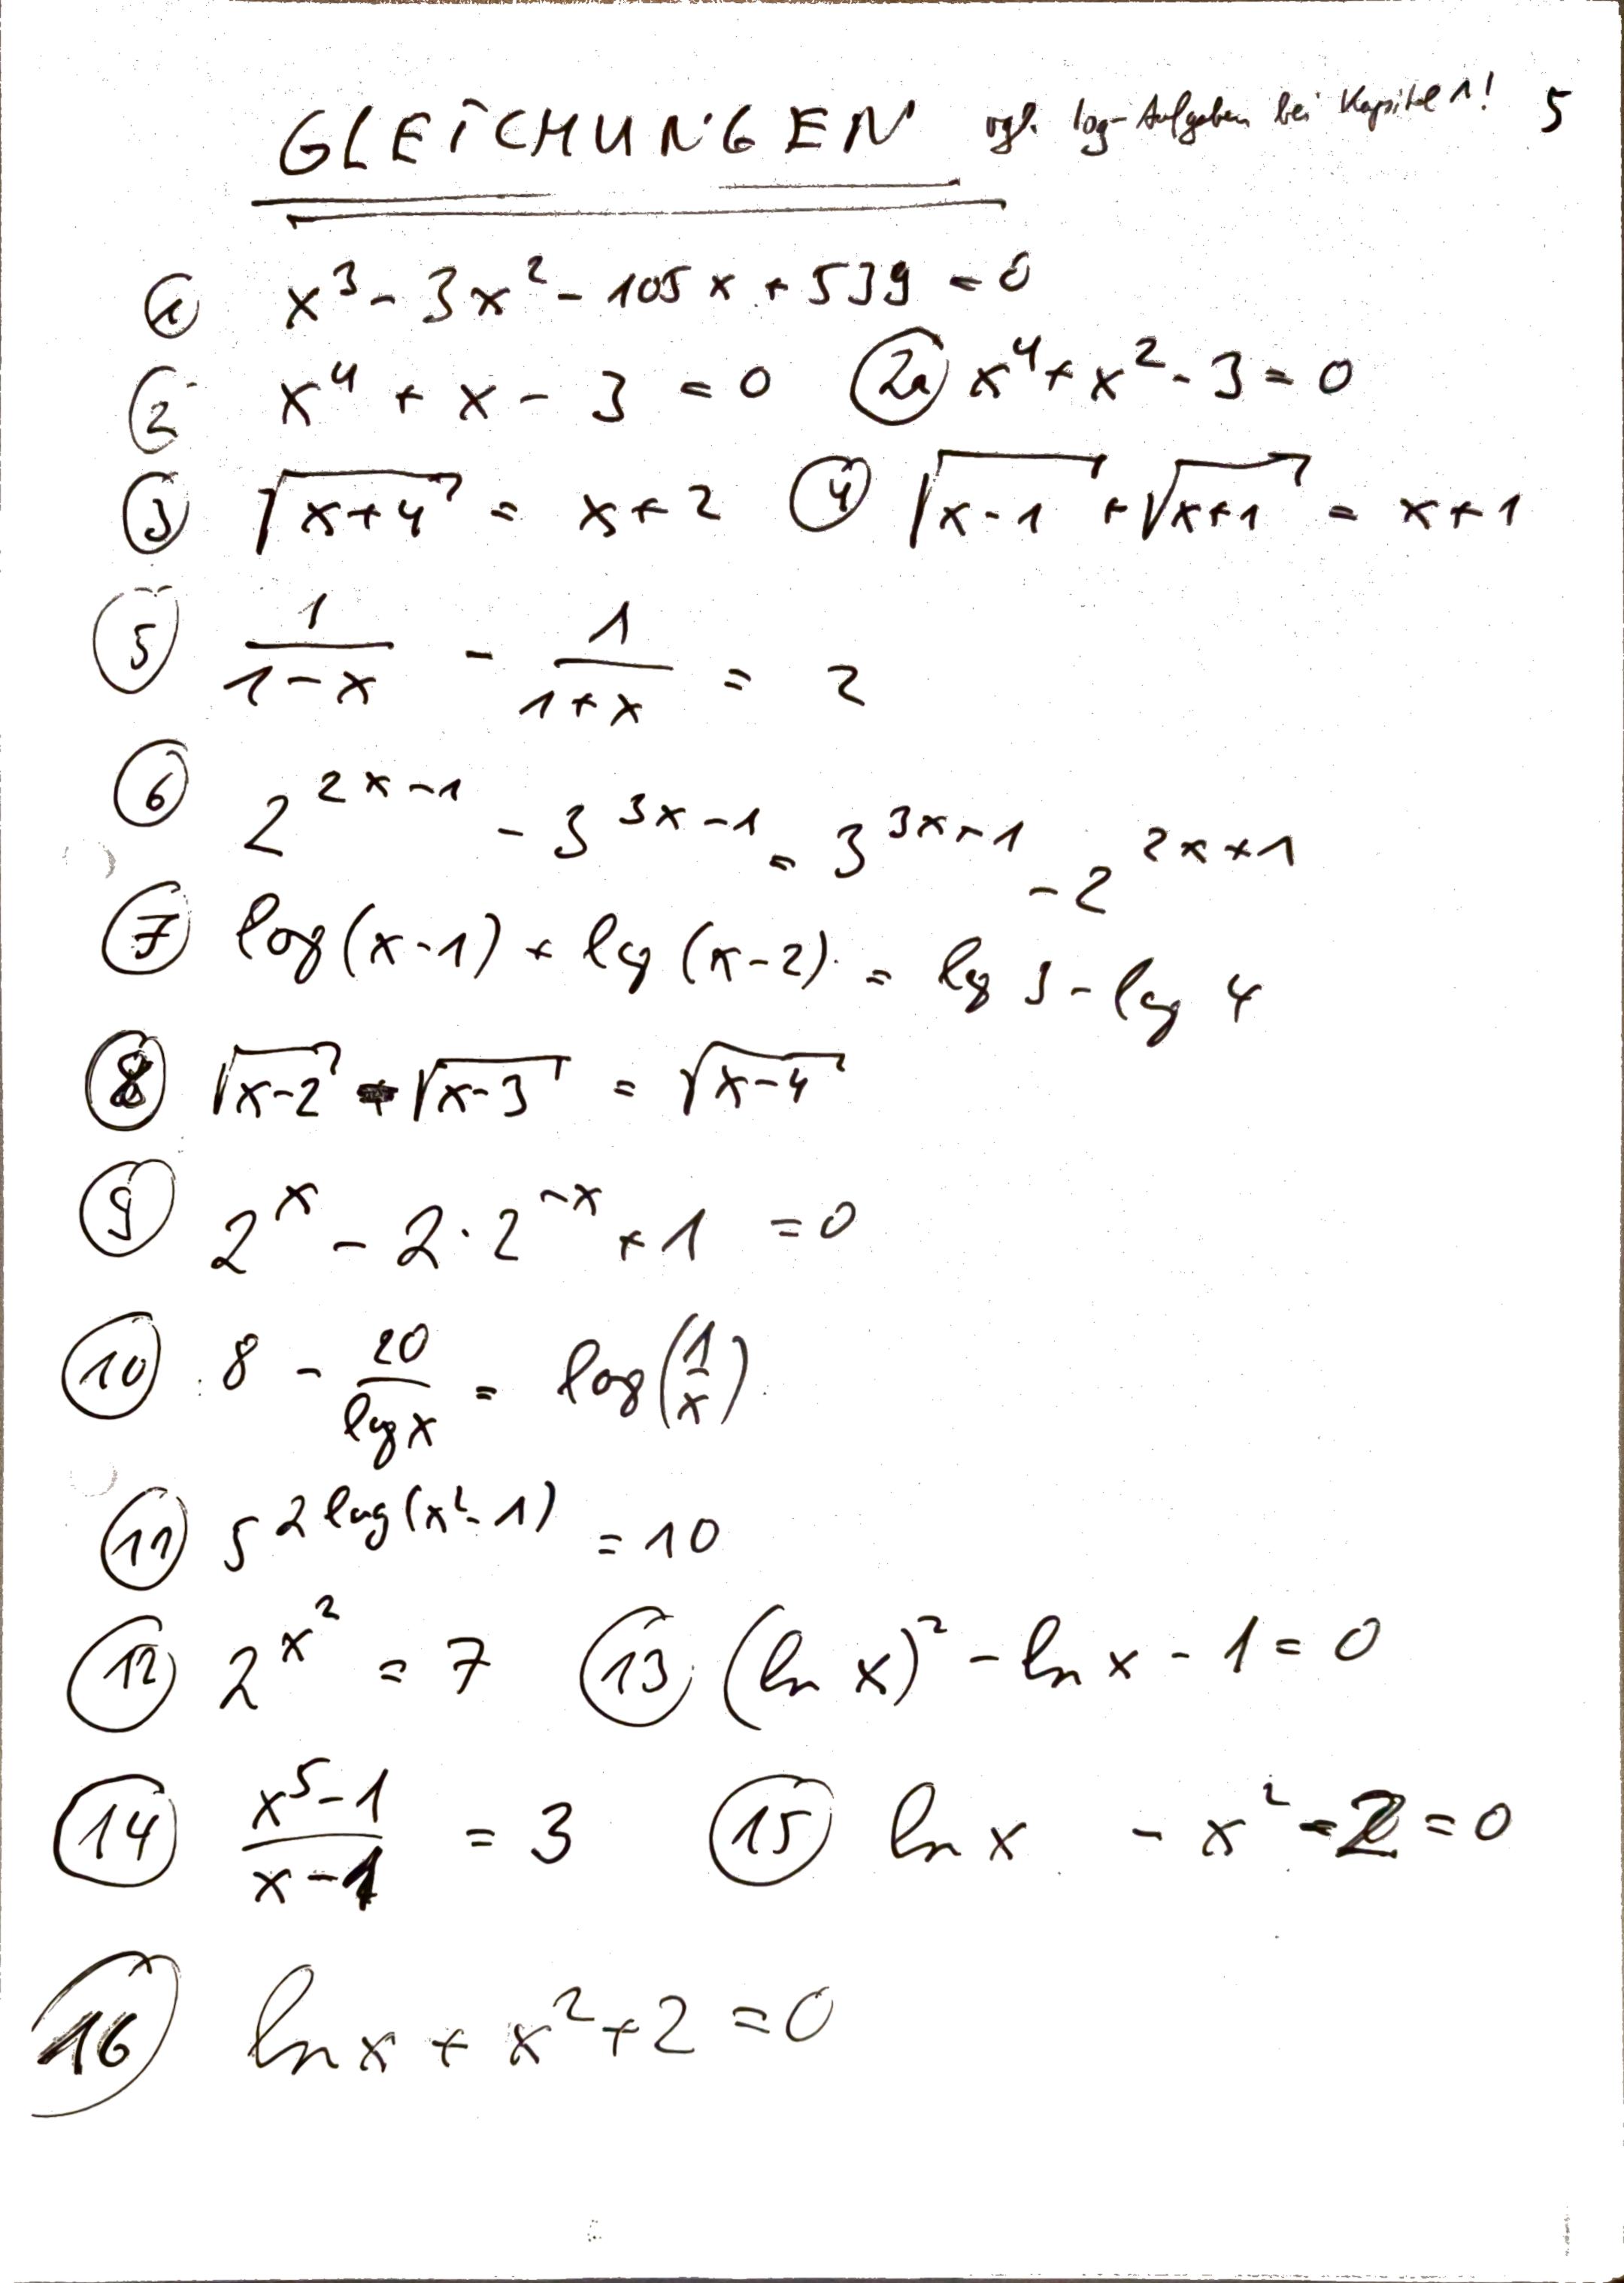 GLEICHUNGEN vgl. log-Aufgaben bei Kapitel 1! 5
① x³ - 3x² - 105x + 539 = 0
② x⁴ + x - 3 = 0 2a x⁴ + x² - 3 = 0
③ √(x+4) = x+2 ④ √(x-1) + √(x+1) = x+1
⑤ 1/(1-x) - 1/(1+x) = 2
⑥ 2^(2x-1) - 3^(3x-1) = 3^(3x+1) - 2^(2x+1)
⑦ log(x-1) + log(x-2) = log 3 - log 4
⑧ √(x-2) - √(x-3) = √(x-4)
⑨ 2^x - 2·2^(-x) + 1 = 0
⑩ 8 - 20/log x = log(1/x)
⑪ 5^(2 log(x²-1)) = 10
⑫ 2^(x²) = 7 ⑬ (ln x)² - ln x - 1 = 0
⑭ (x⁵-1)/(x-1) = 3 ⑮ ln x - x² - 2 = 0
⑯ ln x + x² + 2 = 0